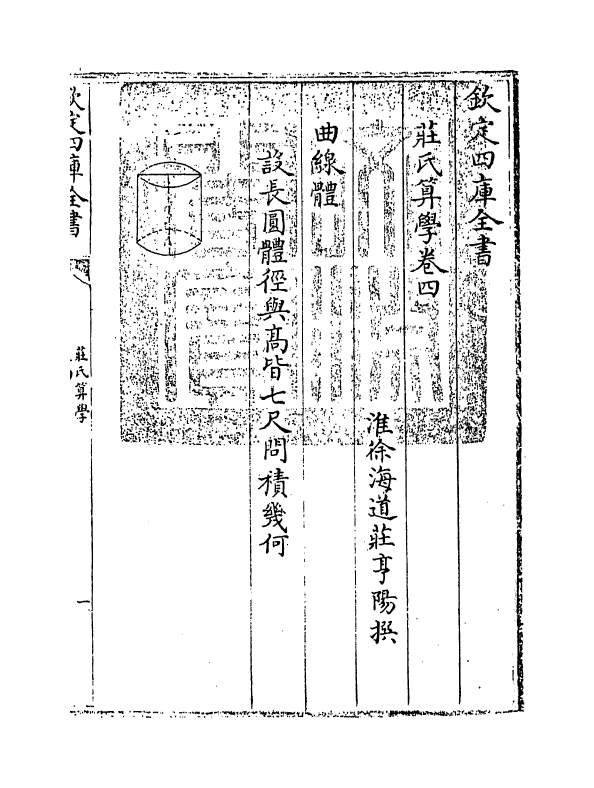 欽定四庫全書
莊氏算學卷四
淮徐海道莊亨陽撰
曲線體
設長圓體徑與髙皆七尺問積幾何
欽定四庫全書
莊氏算學
一